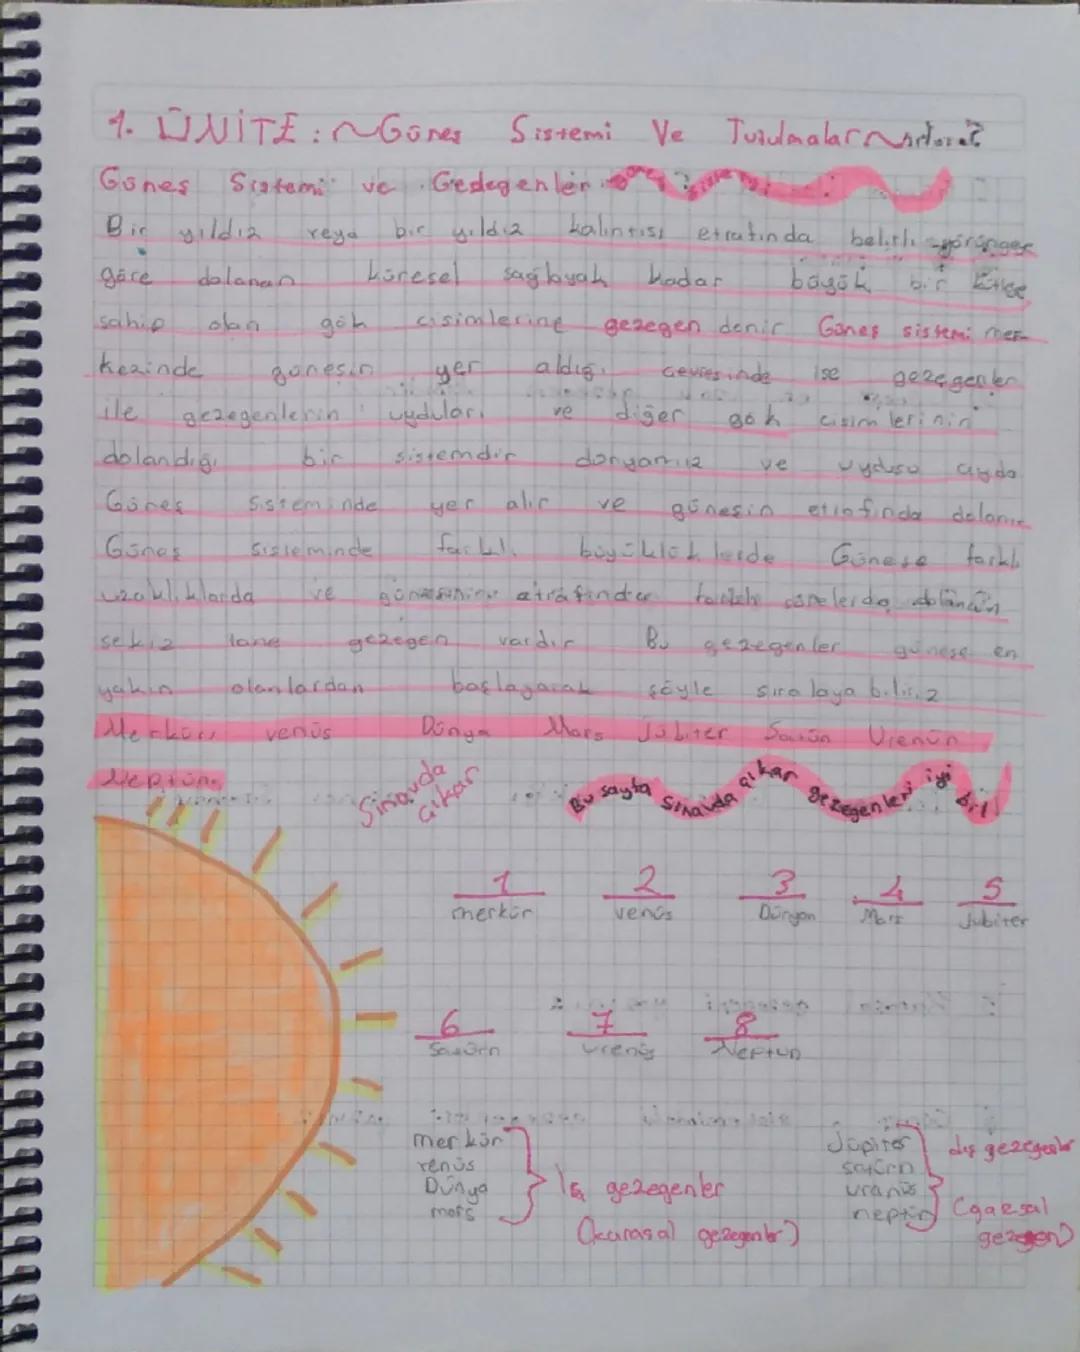 1. ÜNİTE: ~Güneş Sistemi Ve Tutulmalar~
Güneş Sistemi ve Gedegenler
Bir yıldız veya bir yıldız kalıntısı etrafında belirli yörünger
göre dolanan küresel sağlayak kadar büyük bir kütlee
sahip olan gök cisimlerine gezegen denir Güneş sistemi mer-
kezinde güneşin yer aldığı çevresinde ise gezegenler
ile gezegenlerin uyduları ve diğer gök cisimlerinin
dolandığı bir sistemdir dünyamız ve uydusu ayda
Güneş sisteminde yer alır ve güneşin etrafında dolanır
Güneş sisteminde farklı büyüklüklerde Güneşe farklı
uzaklıklarda ve etrafında farklı sürelerde dolanan
sekiz tane gezegen vardır Bu gezegenler güneşe en
yakın olanlardan başlayarak şöyle sıralaya biliriz
Merkür venüs Dünya Mars Jübiter Satürn Urenün
Neptün
Sınavda çıkar
Bu sayfa sınavda çıkar gezegenleri iyi bil!
1 2 3 4 5
merkür venüs Dünyan Mars Jubiter
6 7 8
Satürn urenüs Neptun
merkür
venüs
Dünya
mars
İç gezegenler
(karasal gezegenler)
Jüpiter
satürn
uranüs
neptün
dış gezegenler
(gazsal
gezegen)